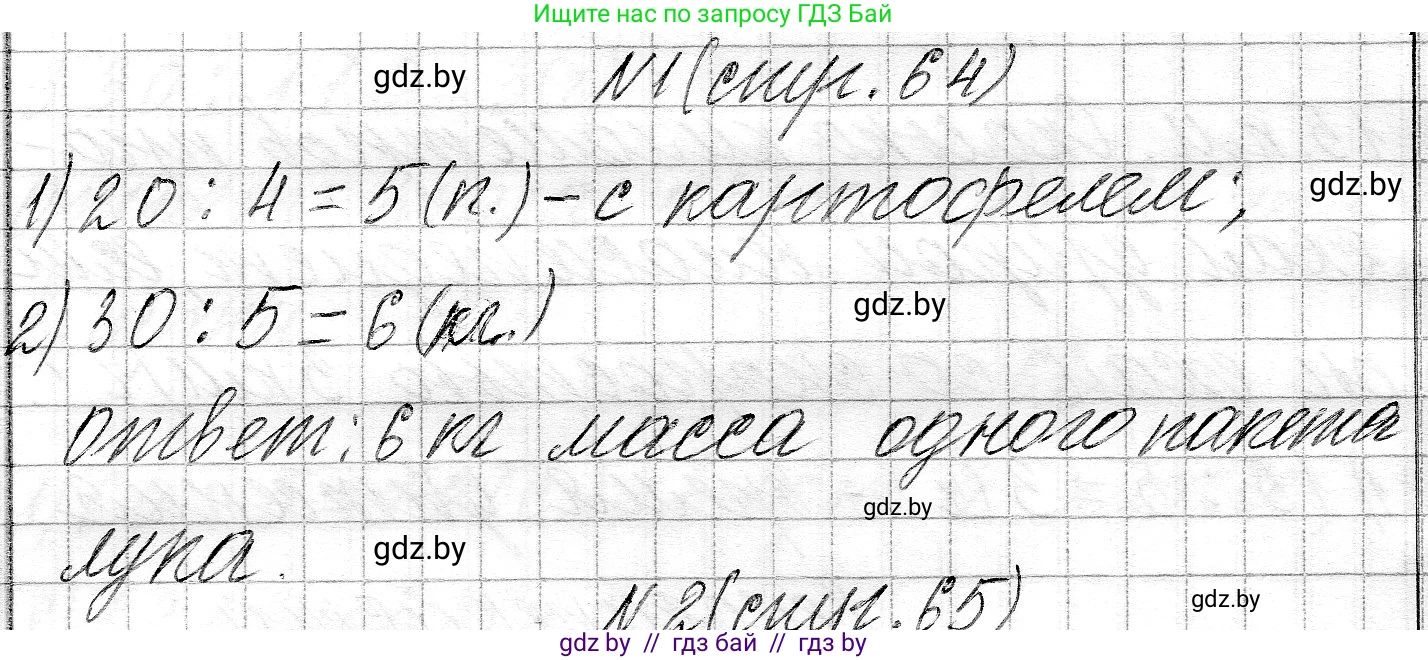 Ищите нас по запросу ГДЗ Бай
gdz.by
№1 (стр. 64)
1) 20 : 4 = 5 (п.) – с картофелем;
gdz.by
2) 30 : 5 = 6 (кг.)
gdz.by
ответ: 6 кг масса одного пакета
gdz.by
лука.
gdz.by
№2 (стр. 65)
gdz.by
gdz by // гдз бай // гдз by